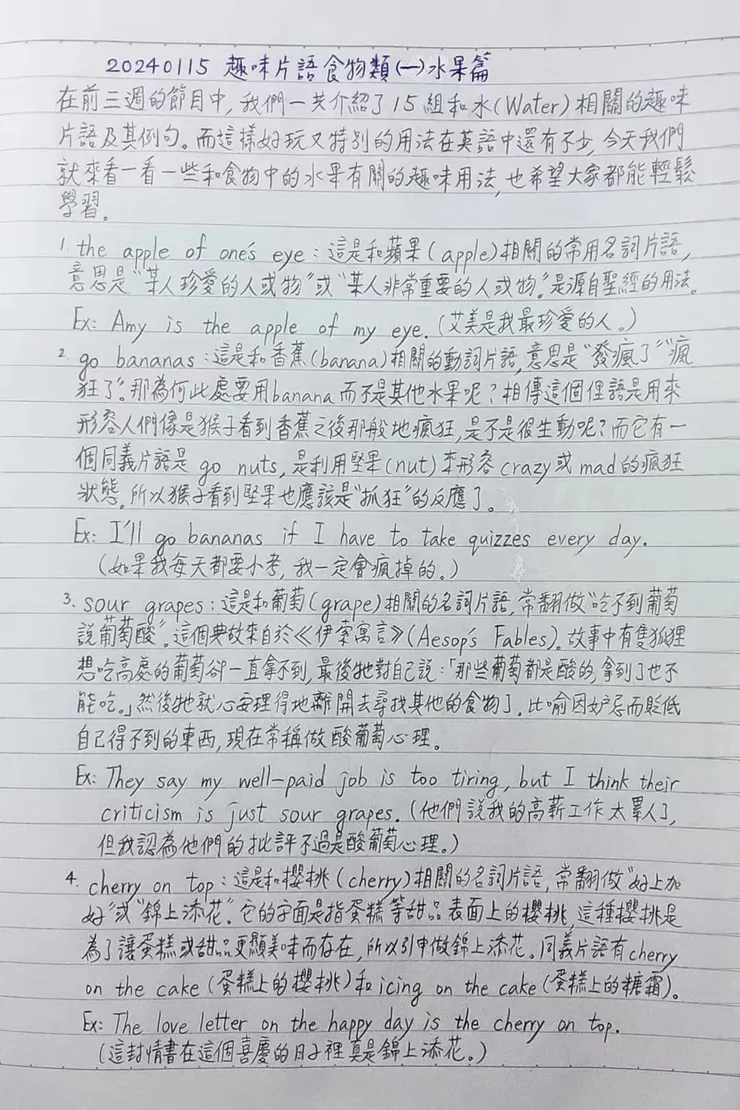 20240115 趣味片語食物類(一)水果篇
在前三週的節目中,我們一共介紹了15組和水(Water)相關的趣味
片語及其例句。而這樣好玩又特別的用法在英語中還有不少,今天我們
就來看一看一些和食物中的水果有關的趣味用法,也希望大家都能輕鬆
學習。
1. the apple of one's eye:這是和蘋果(apple)相關的常用名詞片語,
意思是"某人珍愛的人或物"或"某人非常重要的人或物"。是源自聖經的用法。
Ex: Amy is the apple of my eye.(艾美是我最珍愛的人。)
2. go bananas:這是和香蕉(banana)相關的動詞片語,意思是"發瘋了""瘋
狂了"。那為何此處要用banana而不是其他水果呢?相傳這個俚語是用來
形容人們像是猴子看到香蕉之後那般地瘋狂,是不是很生動呢?而它有一
個同義片語是go nuts,是利用堅果(nut)來形容crazy或mad的瘋狂
狀態。所以猴子看到堅果也應該是"抓狂"的反應了。
Ex: I'll go bananas if I have to take quizzes every day.
(如果我每天都要小考,我一定會瘋掉的。)
3. sour grapes:這是和葡萄(grape)相關的名詞片語,常翻做"吃不到葡萄
說葡萄酸"。這個典故來自於《伊索寓言》(Aesop's Fables)。故事中有隻狐狸
想吃高處的葡萄卻一直拿不到,最後牠對自己說:「那些葡萄都是酸的,拿到了也不
能吃。」然後牠就心安理得地離開去尋找其他的食物了。比喻因妒忌而貶低
自己得不到的東西,現在常稱做酸葡萄心理。
Ex: They say my well-paid job is too tiring, but I think their
criticism is just sour grapes.(他們說我的高薪工作太累人了,
但我認為他們的批評不過是酸葡萄心理。)
4. cherry on top:這是和櫻桃(cherry)相關的名詞片語,常翻做"好上加
好"或"錦上添花"。它的字面是指蛋糕等甜品表面上的櫻桃,這種櫻桃是
為了讓蛋糕或甜品更顯美味而存在,所以引申做錦上添花。同義片語有cherry
on the cake(蛋糕上的櫻桃)和icing on the cake(蛋糕上的糖霜)。
Ex: The love letter on the happy day is the cherry on top.
(這封情書在這個喜慶的日子裡真是錦上添花。)